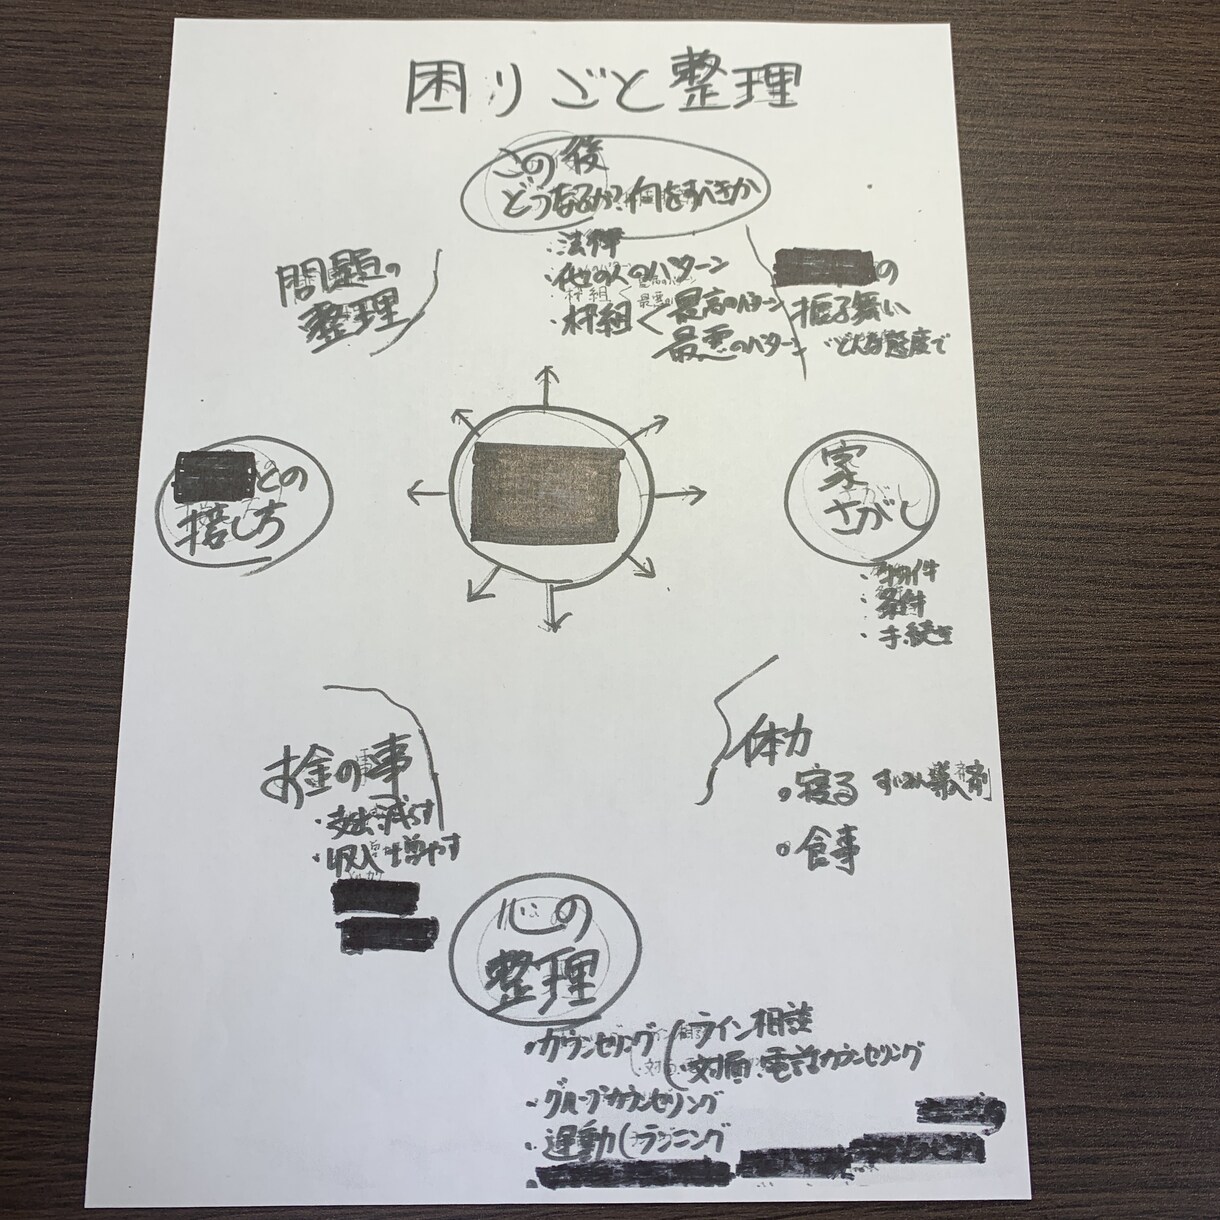 困りごと整理
この後
どうなるか?何をすべきか
・法律
・他の人のパターン
・枠組<最高のパターン
最悪のパターン
問題の
整理
の
振る舞い
どんな態度で
との
接し方
家
さがし
・物件
・条件
・手続き
お金の事
・支出減らす
・収入増やす
体力
寝る すいみん導入剤
食事
心の
整理
・カウンセリング(ライン相談
・対面・電話カウンセリング
・グループカウンセリング
・運動(ランニング